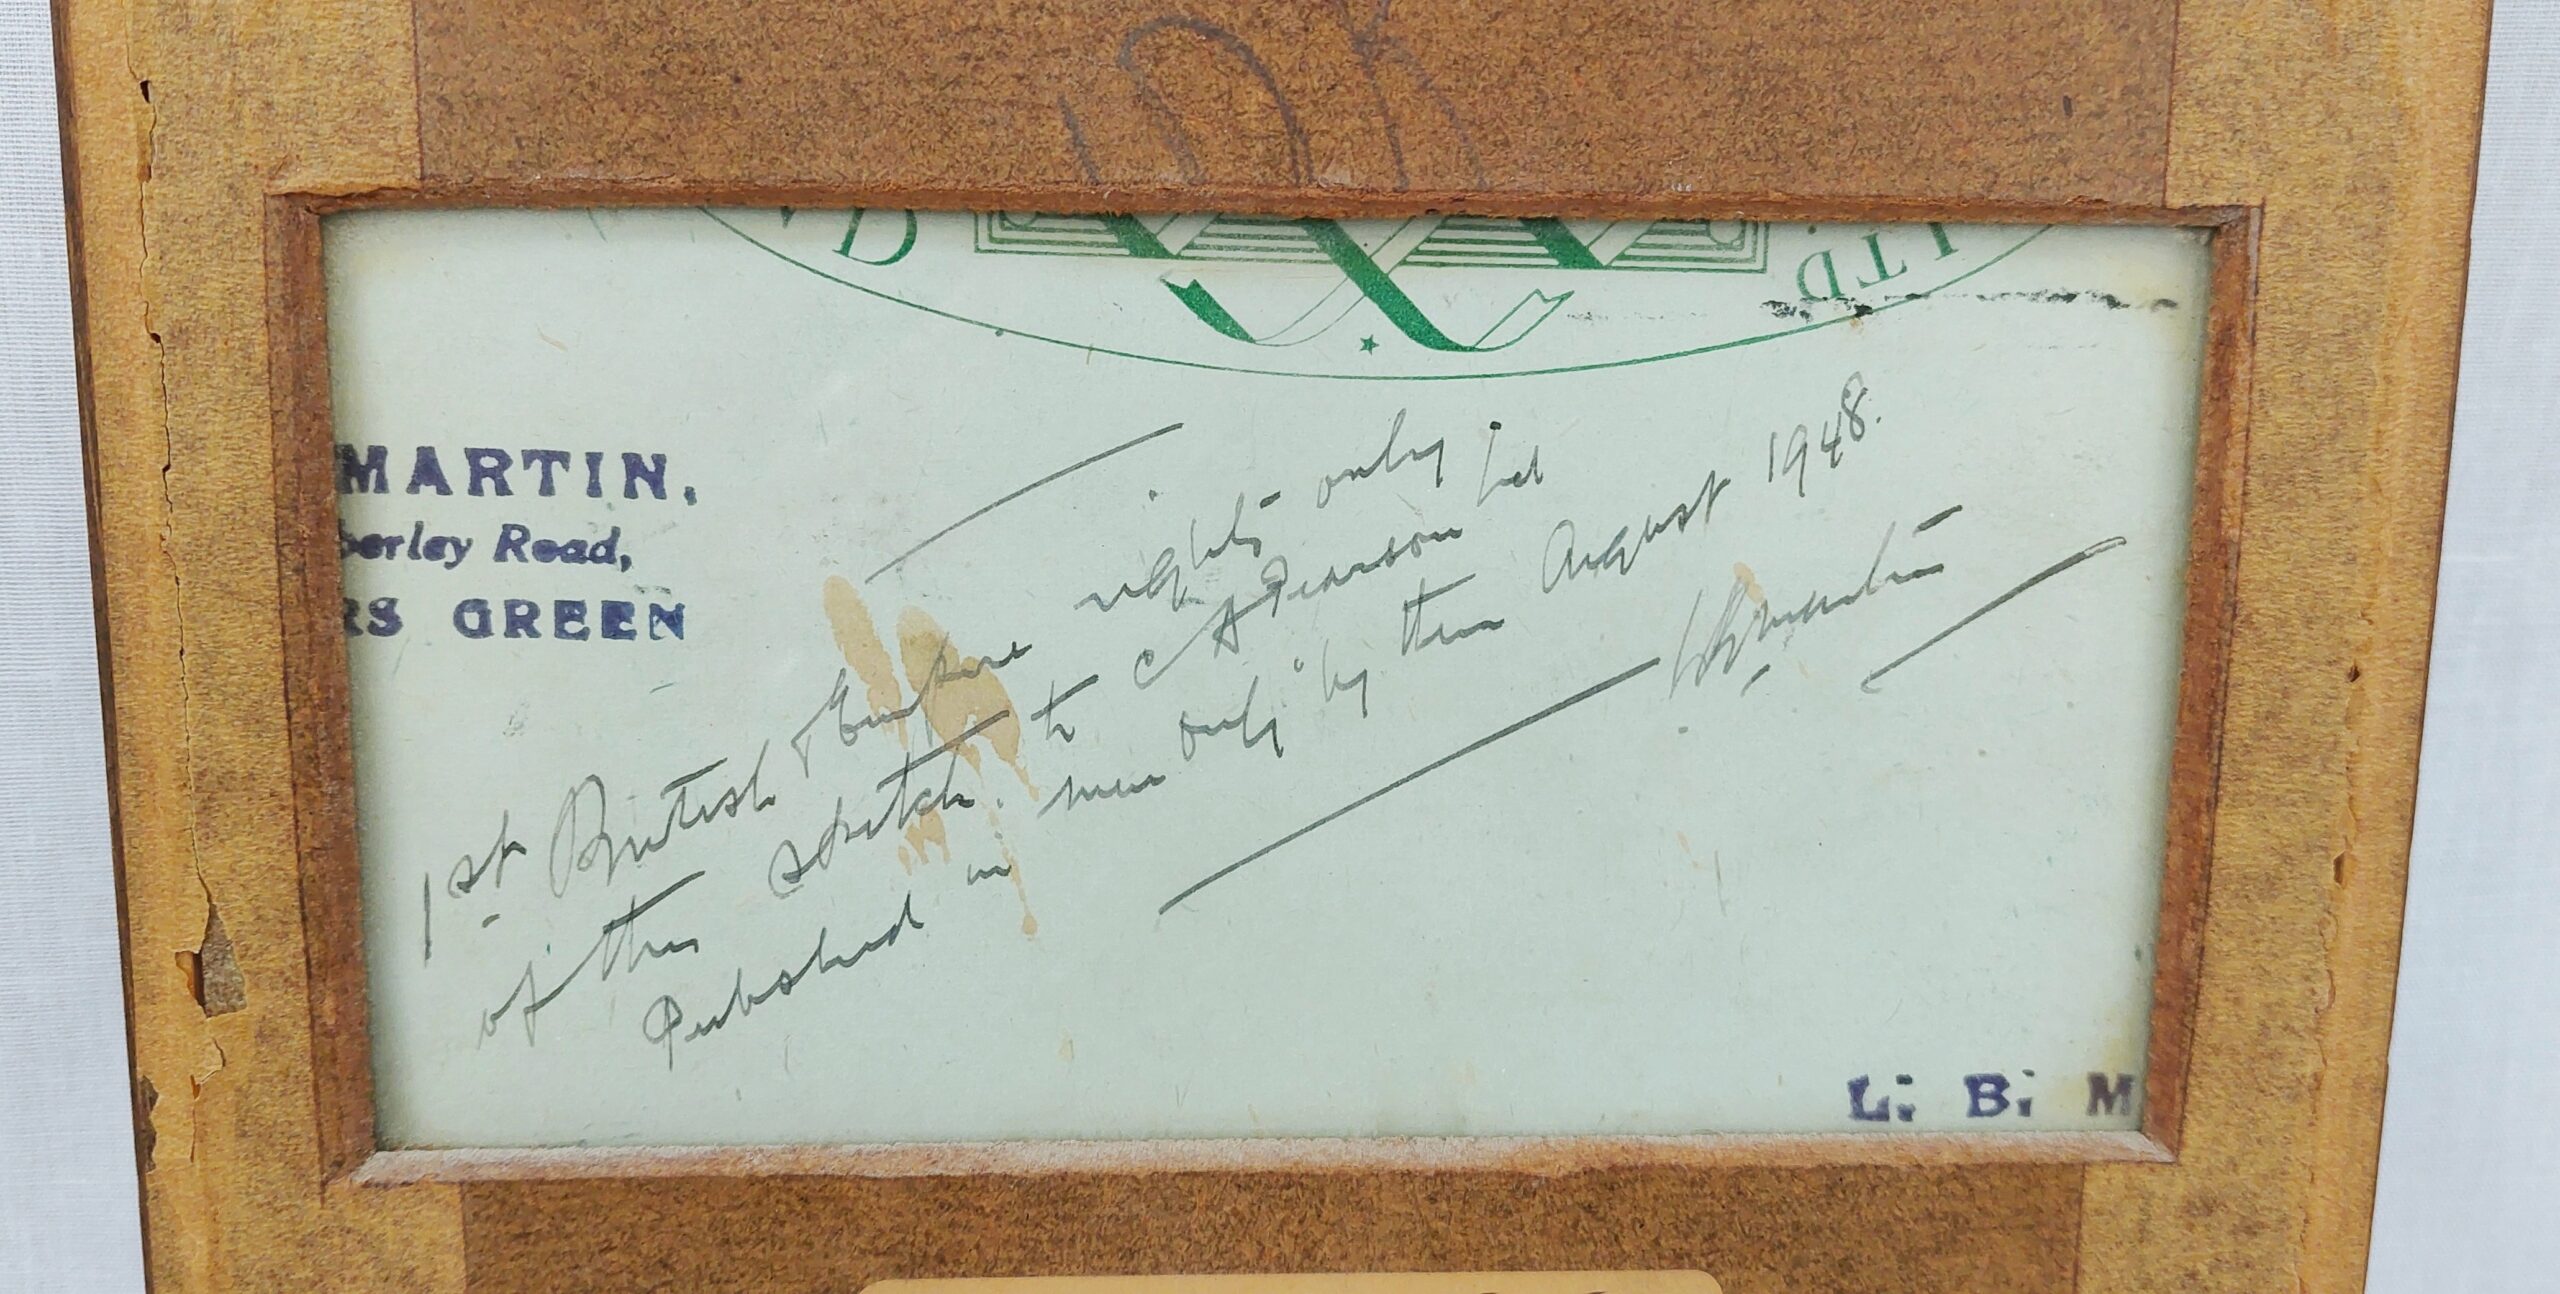 LTD.
MARTIN,
berley Road,
RS GREEN
1st British & Empire rights only
of this sketch. to C A Pearson Ltd
Published in men only by them August 1948.
LBMartin
L. B. M